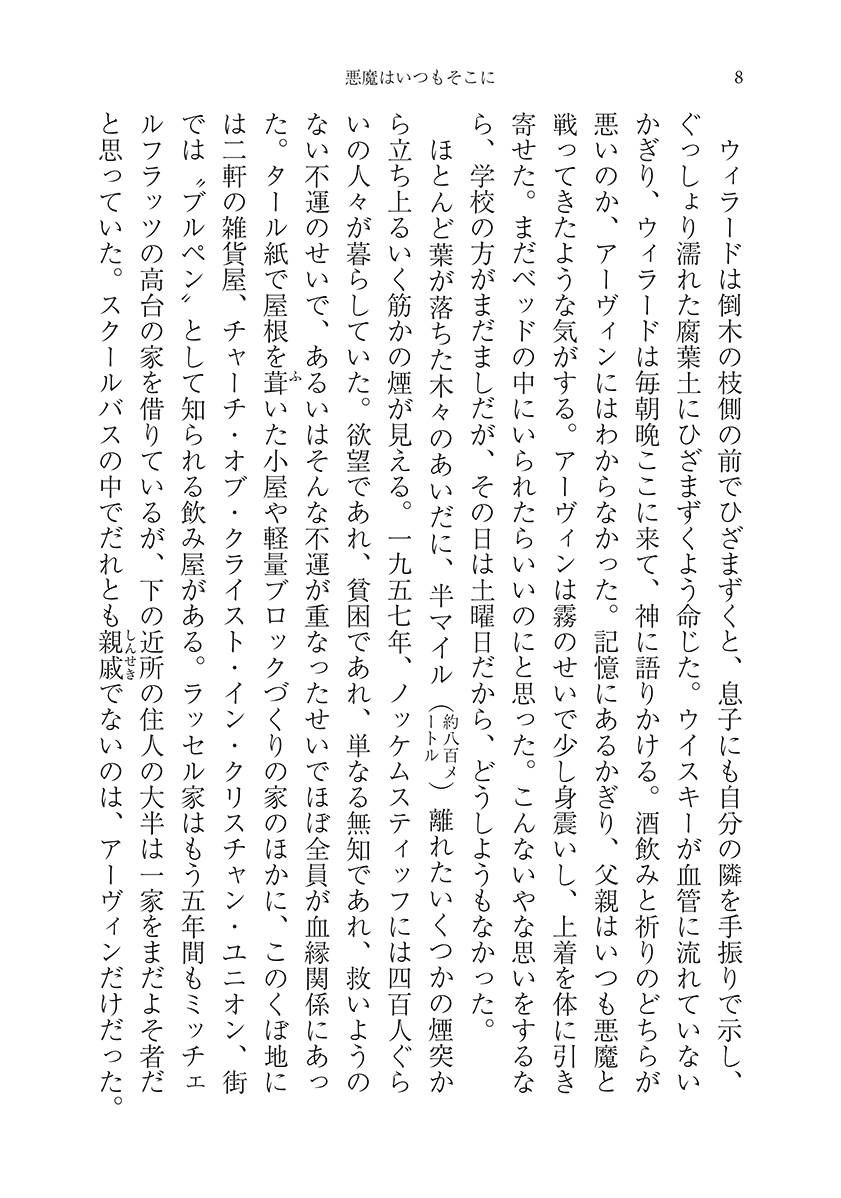 悪魔はいつもそこに
8
　ウィラードは倒木の枝側の前でひざまずくと、息子にも自分の隣を手振りで示し、
ぐっしょり濡れた腐葉土にひざまずくよう命じた。ウイスキーが血管に流れていない
かぎり、ウィラードは毎朝晩ここに来て、神に語りかける。酒飲みと祈りのどちらが
悪いのか、アーヴィンにはわからなかった。記憶にあるかぎり、父親はいつも悪魔と
戦ってきたような気がする。アーヴィンは霧のせいで少し身震いし、上着を体に引き
寄せた。まだベッドの中にいられたらいいのにと思った。こんないやな思いをするな
ら、学校の方がまだましだが、その日は土曜日だから、どうしようもなかった。
　ほとんど葉が落ちた木々のあいだに、半マイル（約八百メートル）離れたいくつかの煙突か
ら立ち上るいく筋かの煙が見える。一九五七年、ノッケムスティッフには四百人ぐら
いの人々が暮らしていた。欲望であれ、貧困であれ、単なる無知であれ、救いようの
ない不運のせいで、あるいはそんな不運が重なったせいでほぼ全員が血縁関係にあっ
た。タール紙で屋根を葺ふいた小屋や軽量ブロックづくりの家のほかに、このくぼ地に
は二軒の雑貨屋、チャーチ・オブ・クライスト・イン・クリスチャン・ユニオン、街
では〝ブルペン〟として知られる飲み屋がある。ラッセル家はもう五年間もミッチェ
ルフラッツの高台の家を借りているが、下の近所の住人の大半は一家をまだよそ者だ
と思っていた。スクールバスの中でだれとも親戚しんせきでないのは、アーヴィンだけだった。